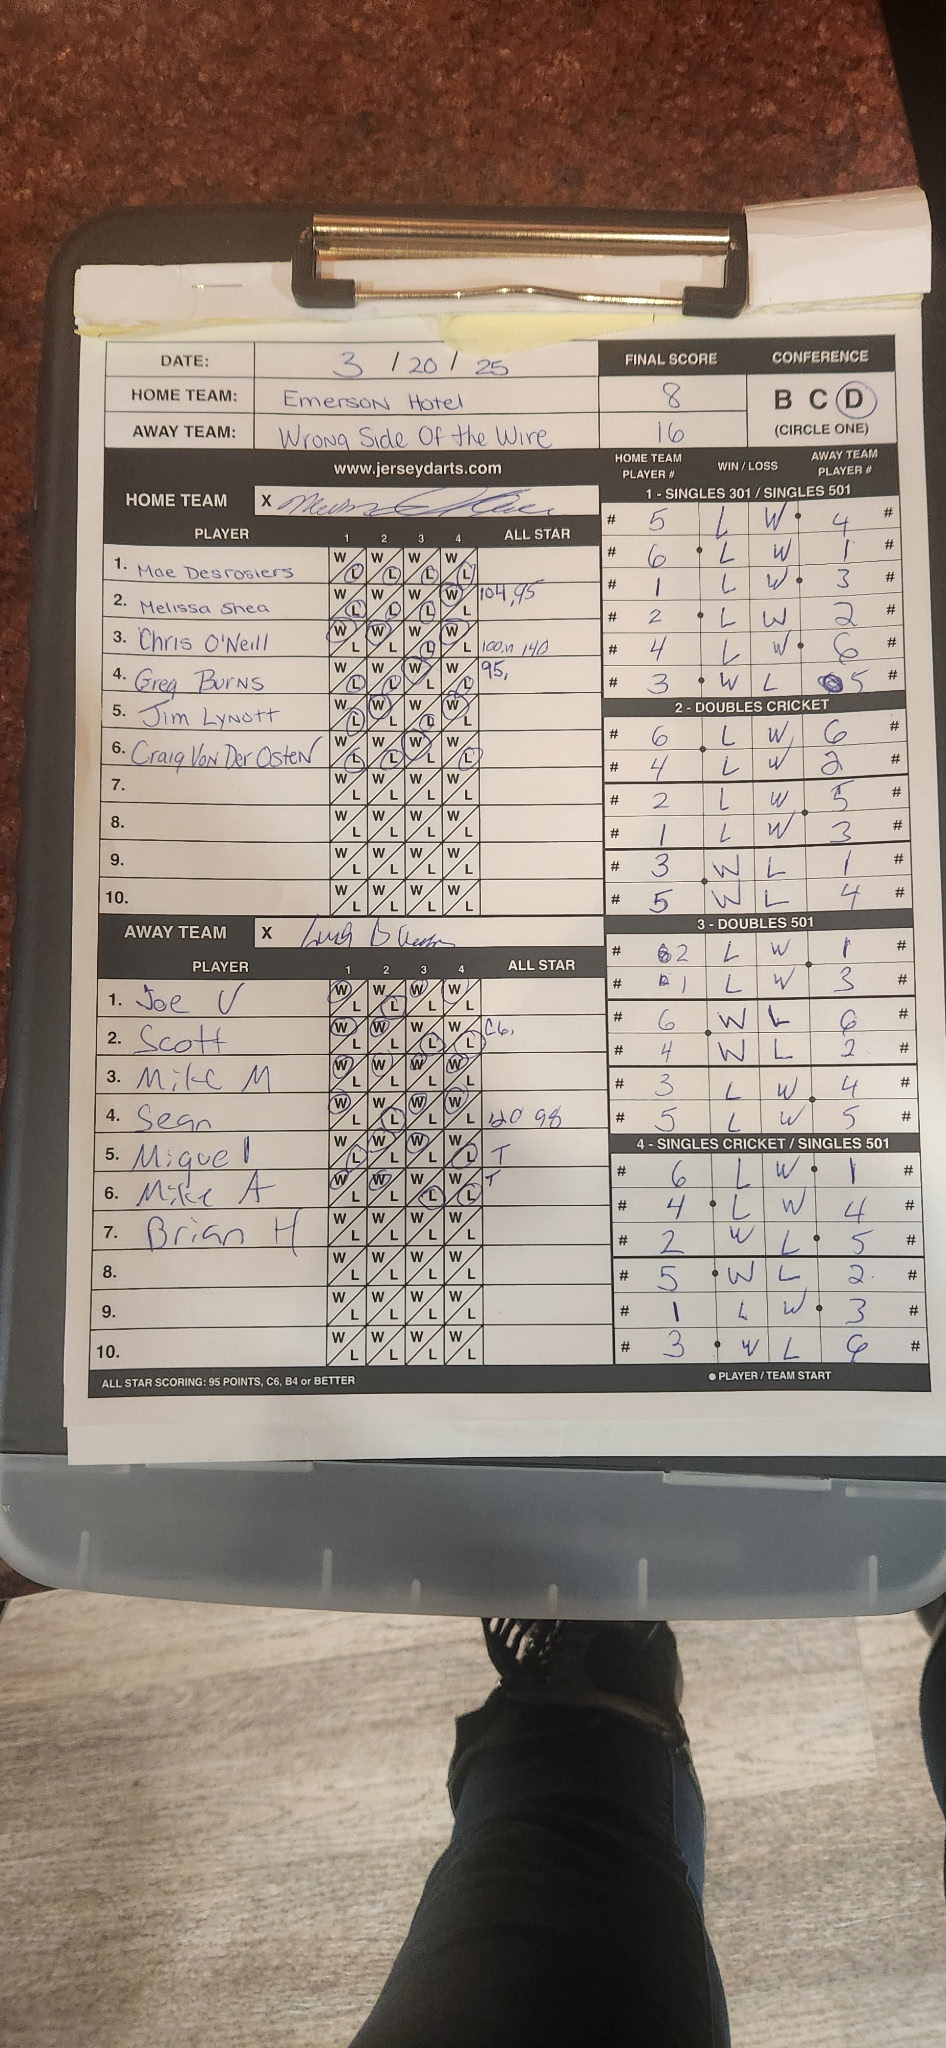 DATE: 3 / 20 / 25 FINAL SCORE CONFERENCE
HOME TEAM: Emerson Hotel 8 B C D
AWAY TEAM: Wrong Side Of the Wire 16 (CIRCLE ONE)
www.jerseydarts.com HOME TEAM PLAYER # WIN / LOSS AWAY TEAM PLAYER #
HOME TEAM X
PLAYER 1 2 3 4 ALL STAR
1. Mae Desrosiers W L W L W L W L
2. Melissa Shea W L W L W L W L 104,95
3. Chris O'Neill W L W L W L W L 140
4. Greg Burns W L W L W L W L 95,
5. Jim Lynott W L W L W L W L
6. Craig Von Der Osten W L W L W L W L
7. W L W L W L W L
8. W L W L W L W L
9. W L W L W L W L
10. W L W L W L W L
AWAY TEAM X
PLAYER 1 2 3 4 ALL STAR
1. Joe V W L W L W L W L
2. Scott W L W L W L W L C6,
3. Mike M W L W L W L W L
4. Sean W L W L W L W L 98
5. Miguel W L W L W L W L T
6. Mike A W L W L W L W L T
7. Brian H W L W L W L W L
8. W L W L W L W L
9. W L W L W L W L
10. W L W L W L W L
ALL STAR SCORING: 95 POINTS, C6, B4 or BETTER
1 - SINGLES 301 / SINGLES 501
# 5 L W 4 #
# 6 L W 1 #
# 1 L W 3 #
# 2 L W 2 #
# 4 L W 6 #
# 3 W L 5 #
2 - DOUBLES CRICKET
# 6 L W 6 #
# 4 L W 2 #
# 2 L W 5 #
# 1 L W 3 #
# 3 W L 1 #
# 5 W L 4 #
3 - DOUBLES 501
# 2 L W 1 #
# 1 L W 3 #
# 6 W L 6 #
# 4 W L 2 #
# 3 L W 4 #
# 5 L W 5 #
4 - SINGLES CRICKET / SINGLES 501
# 6 L W 1 #
# 4 L W 4 #
# 2 W L 5 #
# 5 W L 2 #
# 1 L W 3 #
# 3 W L 6 #
PLAYER / TEAM START